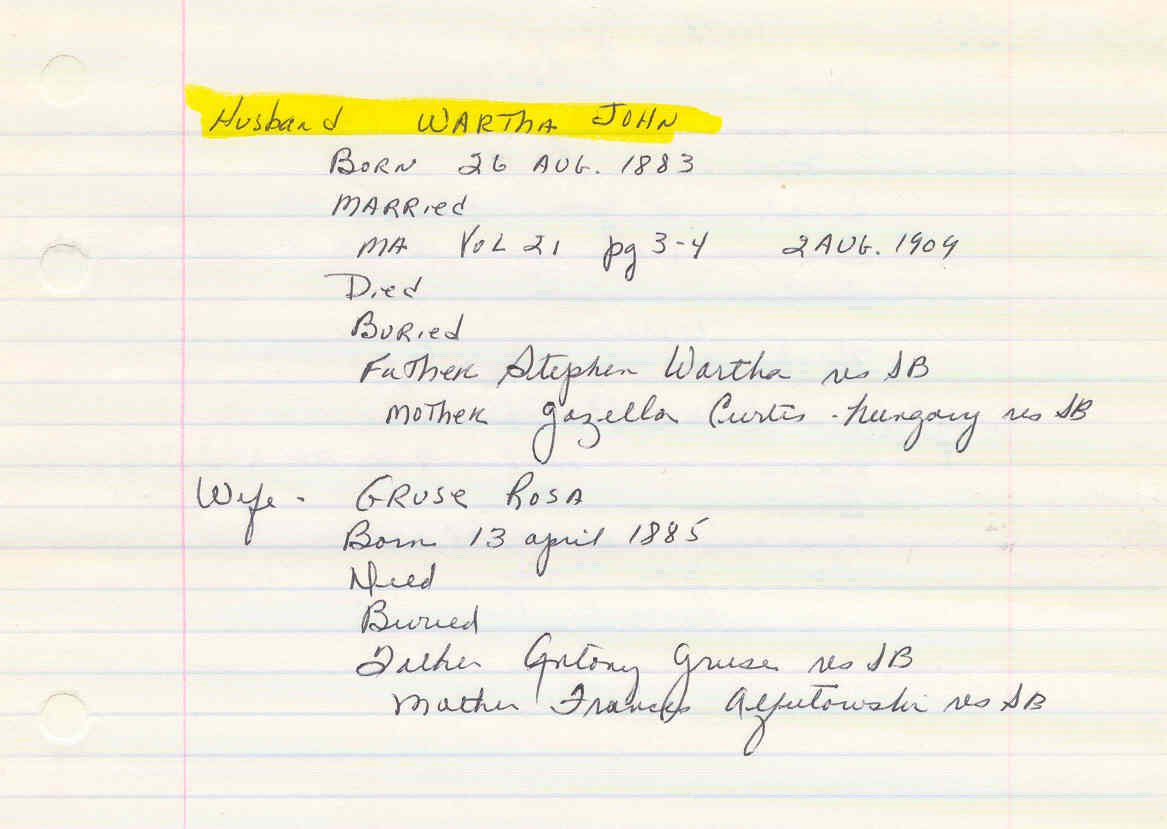 Husband WARTHA JOHN
BORN 26 AUG. 1883
MARRied
MA Vol 21 pg 3-4 2 AUG. 1909
Died
BURied
FATHER Stephen Wartha res SB
MOTHER Gazella Curtis - Hungary res SB
Wife - GRUSE ROSA
Born 13 april 1885
Died
Buried
Father Antony Gruse res SB
Mother Frances res SB